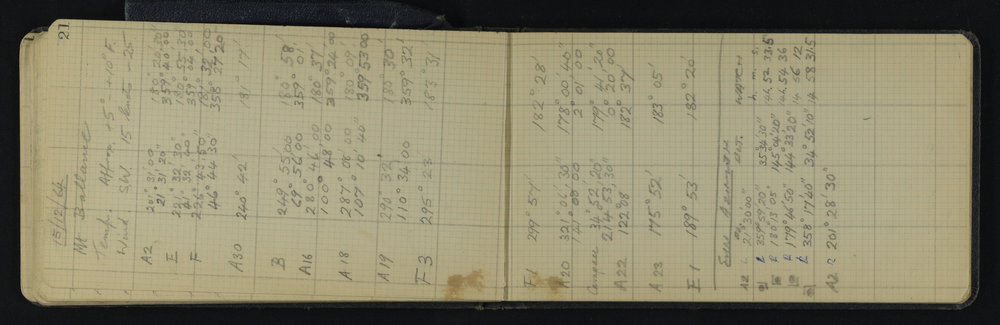 21
15/12/64
Mt Ballance
Temp. Approx +5° - +10° F.
Wind SW 15 knots - 25
A2 201° 31' 00 180° 20' 30"
21° 31' 20" 359° 40' 00
E 221° 32' 30" 180° 55' 30
41° 32' 40" 359 04' 00
F 226° 43' 50" 181° 32' 00
46° 44' 30" 358° 27' 20"
A30 240° 42' 181° 17'
B 249° 55' 00 180° 58'
69° 56' 00 359° 01'
A16 280° 46' 00 180° 37'
100° 48' 00 359° 24' 00
A18 287° 08' 00 180° 07'
107° 10' 40" 359° 53' 00
A19 290° 32' 180° 30'
110° 34' 00 359° 32'
F3 295° 23' 183° 31'
F1 299° 57' 182° 28'
A20 321° 06' 30" 178° 00' 40"
141° 00' 00 2° 01' 00
Compass 34° 52' 20" 179° 44' 20"
214° 53' 30" 0° 20' 00
A22 122° 08' 182° 37'
A23 175° 52' 183° 05'
E1 189° 53' 182° 20'
Sun Azimuth
WATCH
h. m. s.
A2 L 21° 30' 00"
359° 59' 20" 35° 34' 30" 14 52 33.5
R 180° 13' 05" 145° 04' 20" 14 54 36
R 179° 46' 50" 144° 33' 20" 14 56 12
L 358° 17' 40" 34° 52' 10" 14 58 31.5
A2 R 201° 28' 30"